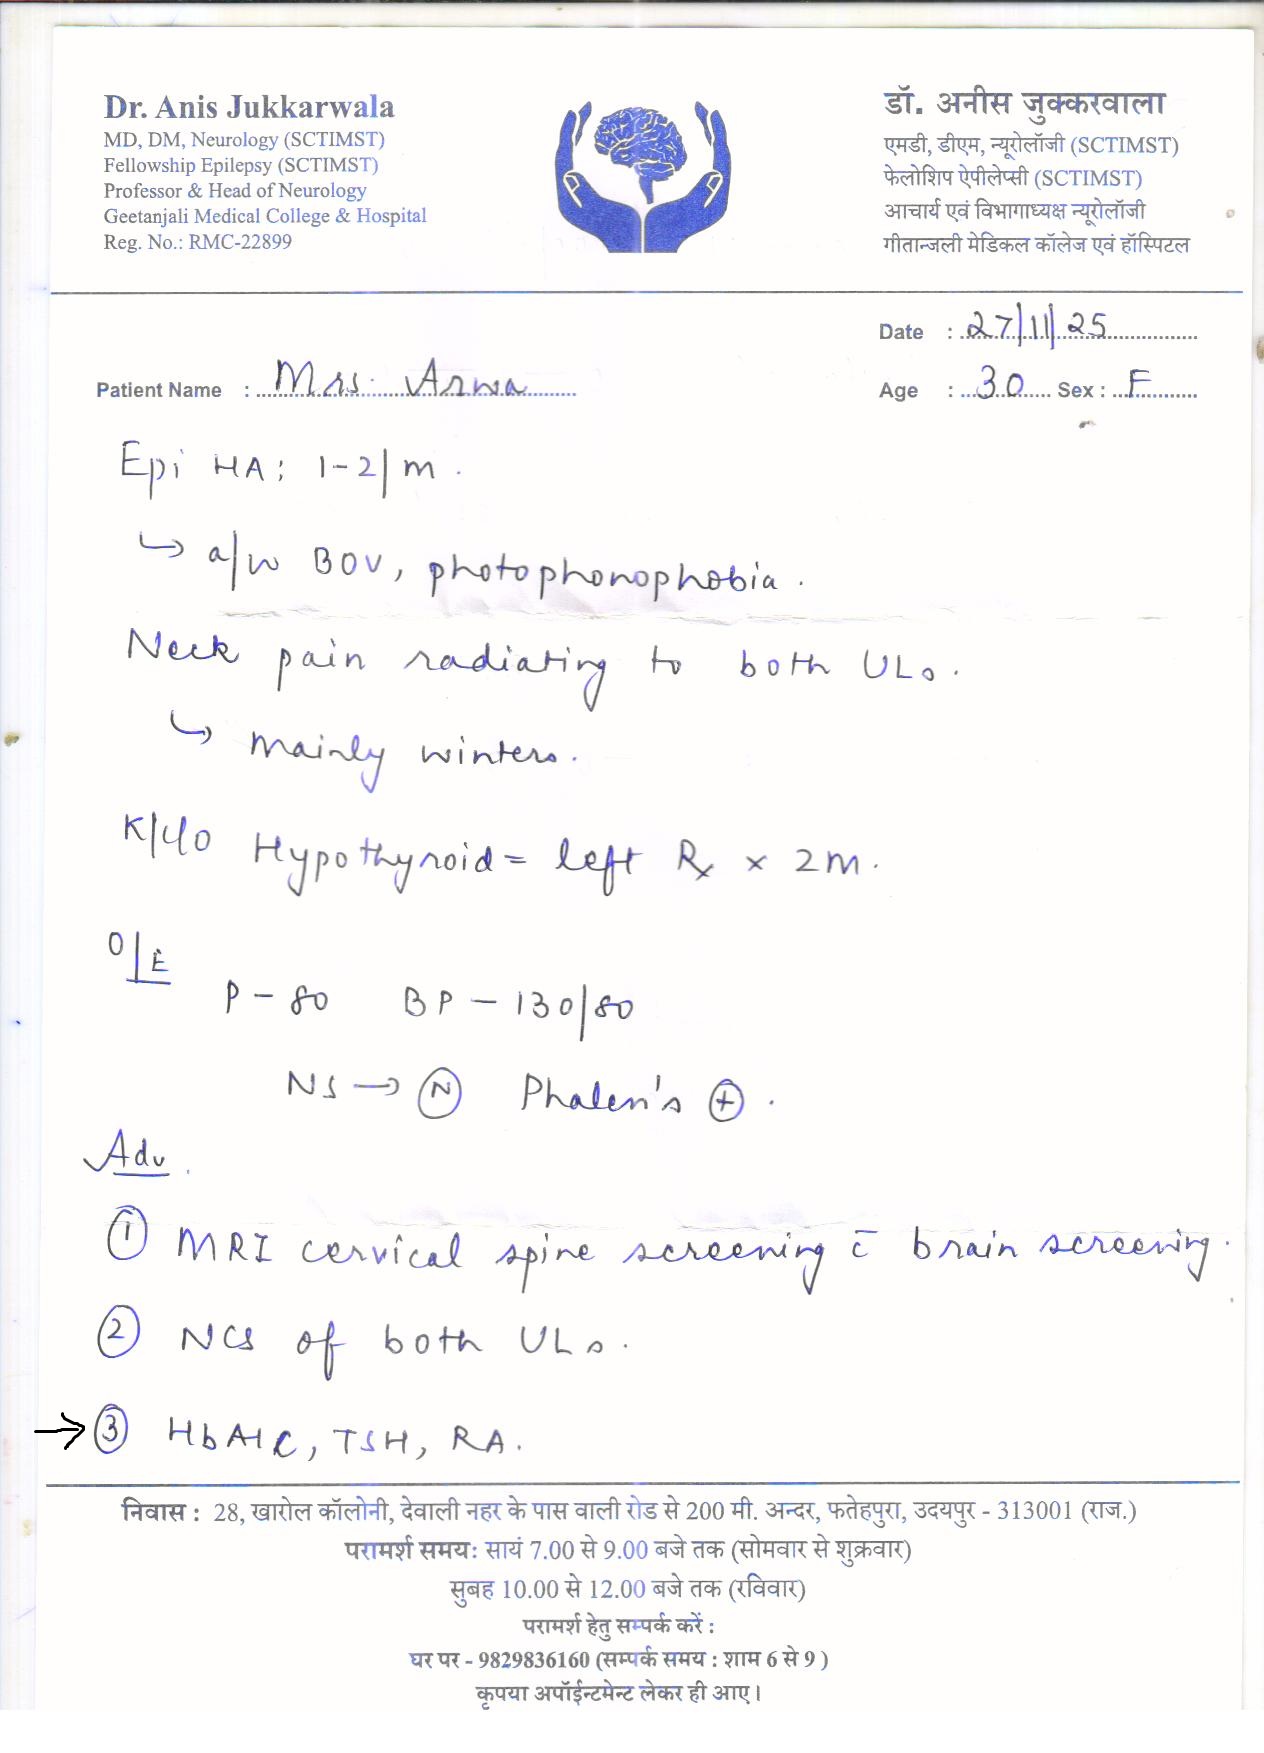 Dr. Anis Jukkarwala
MD, DM, Neurology (SCTIMST)
Fellowship Epilepsy (SCTIMST)
Professor & Head of Neurology
Geetanjali Medical College & Hospital
Reg. No.: RMC-22899
डॉ. अनीस जुक्करवाला
एमडी, डीएम, न्यूरोलॉजी (SCTIMST)
फेलोशिप ऐपीलेप्सी (SCTIMST)
आचार्य एवं विभागाध्यक्ष न्यूरोलॉजी
गीतान्जली मेडिकल कॉलेज एवं हॉस्पिटल
Date : 27/11/25
Patient Name : Mrs. Arwa
Age : 30 Sex : F
Epi HA: 1-2/m.
↳ a/w BOV, photophonophobia.
Neck pain radiating to both ULs.
↳ mainly winters.
K/c/o Hypothyroid = left Rx x 2m.
O/E
P - 80 BP - 130/80
NS → Ⓝ Phalen's ⊕.
Adv.
① MRI cervical spine screening c̄ brain screening.
② NCS of both ULs.
→ ③ HbA1C, TSH, RA.
निवास : 28, खारोल कॉलोनी, देवाली नहर के पास वाली रोड से 200 मी. अन्दर, फतेहपुरा, उदयपुर - 313001 (राज.)
परामर्श समय: सायं 7.00 से 9.00 बजे तक (सोमवार से शुक्रवार)
सुबह 10.00 से 12.00 बजे तक (रविवार)
परामर्श हेतु सम्पर्क करें :
घर पर - 9829836160 (सम्पर्क समय : शाम 6 से 9 )
कृपया अपॉईन्टमेन्ट लेकर ही आए।